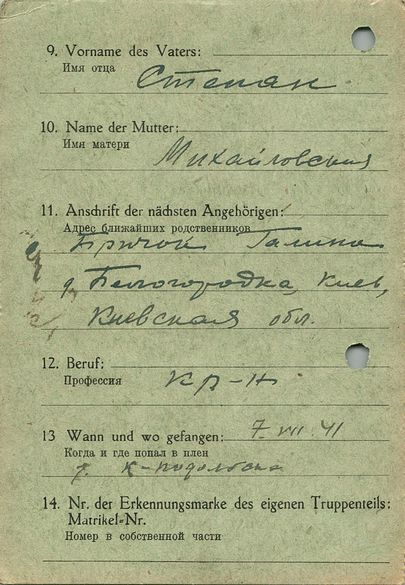 9. Vorname des Vaters:
Имя отца
Степан
10. Name der Mutter:
Имя матери
Михайловская
11. Anschrift der nächsten Angehörigen:
Адрес ближайших родственников
Галина
д. Белогородка, Киев,
Киевская обл.
12. Beruf:
Профессия
кр-н
13 Wann und wo gefangen: 7. VII. 41
Когда и где попал в плен
К-Подольск
14. Nr. der Erkennungsmarke des eigenen Truppenteils:
Matrikel-Nr.
Номер в собственной части